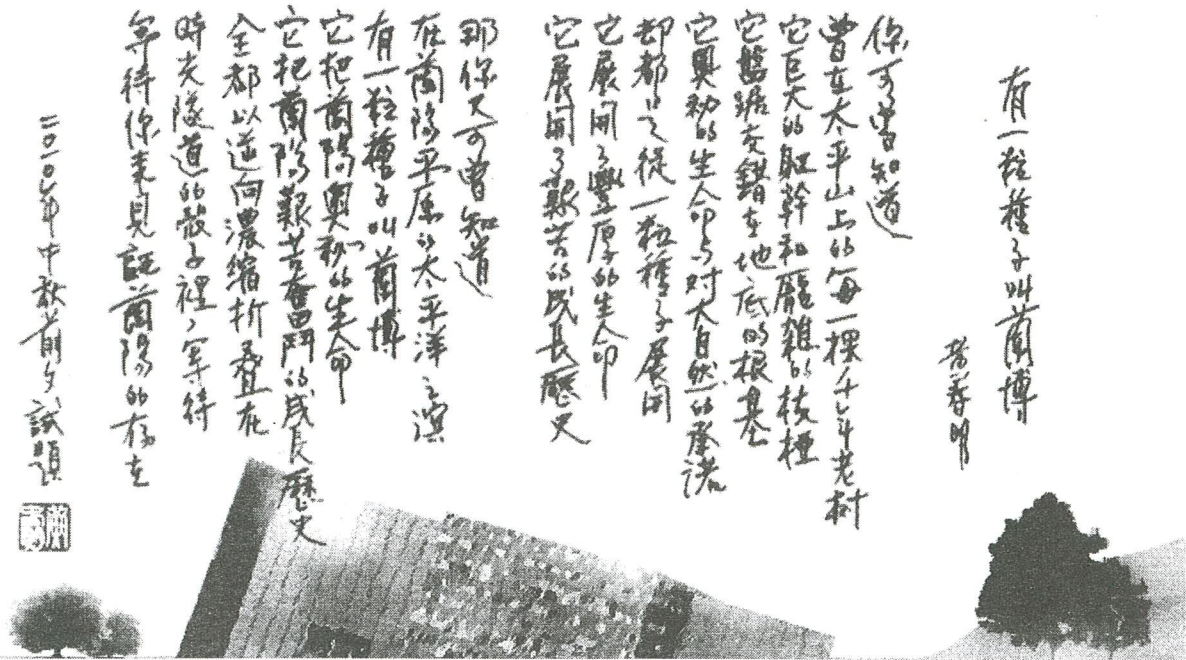 有一粒種子叫蘭博
黃春明
你可曾知道
曾在太平山上的每一棵千年老樹
它巨大的軀幹和龐雜的枝椏
它盤踞交錯在地底的根基
它奧秘的生命与對大自然的承諾
卻都是從一粒種子展開
它展開了豐厚的生命
它展開了艱苦的成長歷史
那你又可曾知道
在蘭陽平原的太平洋之濱
有一粒種子叫蘭博
它把蘭陽奧秘的生命
它把蘭陽艱苦奮鬥的成長歷史
全都以逆向濃縮折叠在
時光隧道的殼子裡,等待
等待你來見証蘭陽的存在
二〇一〇年中秋前夕試題